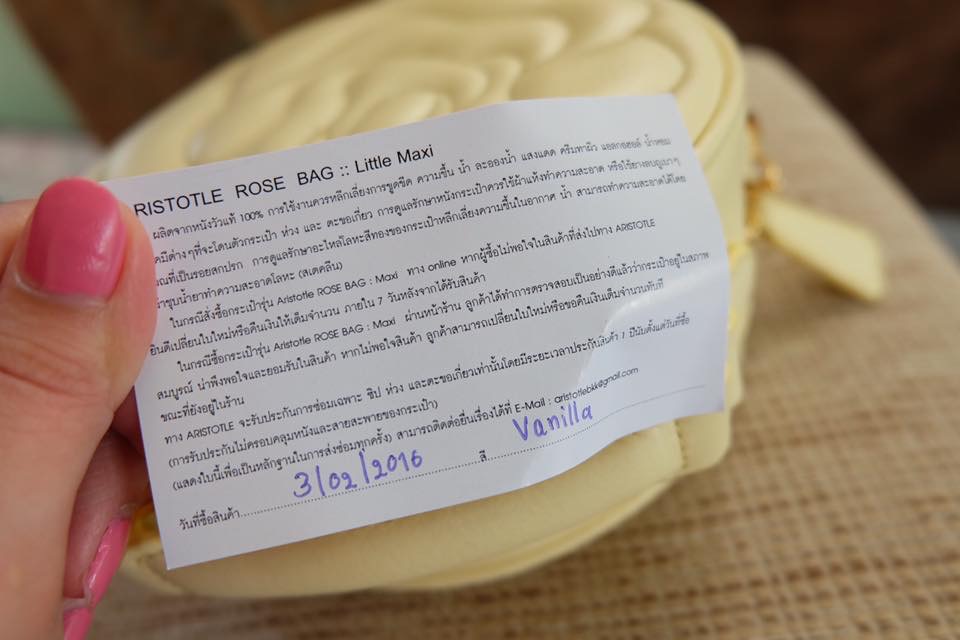 RISTOTLE ROSE BAG :: Little Maxi
ผลิตจากหนังวัวแท้ 100% การใช้งานควรหลีกเลี่ยงการขูดขีด ความชื้น น้ำ ละอองน้ำ แสงแดด ครีมทาผิว แอลกอฮอล์ น้ำหอม
คมีต่างๆที่จะโดนตัวกระเป๋า ห่วง และ ตะขอเกี่ยว การดูแลรักษาหนังกระเป๋าควรใช้ผ้าแห้งทำความสะอาด หรือใช้ยางลบถูเบาๆ
ณที่เป็นรอยสกปรก การดูแลรักษาอะไหล่โลหะสีทองของกระเป๋าหลีกเลี่ยงความชื้นในอากาศ น้ำ สามารถทำความสะอาดได้โดย
้าชุบน้ำยาทำความสะอาดโลหะ (สเตคลีน)
ในกรณีสั่งซื้อกระเป๋ารุ่น Aristotle ROSE BAG : Maxi ทาง online หากผู้ซื้อไม่พอใจในสินค้าที่ส่งไปทาง ARISTOTLE
ยินดีเปลี่ยนใบใหม่หรือคืนเงินให้เต็มจำนวน ภายใน 7 วันหลังจากได้รับสินค้า
ในกรณีซื้อกระเป๋ารุ่น Aristotle ROSE BAG : Maxi ผ่านหน้าร้าน ลูกค้าได้ทำการตรวจสอบเป็นอย่างดีแล้วว่ากระเป๋าอยู่ในสภาพ
สมบูรณ์ น่าพึงพอใจและยอมรับในสินค้า หากไม่พอใจสินค้า ลูกค้าสามารถเปลี่ยนใบใหม่หรือขอคืนเงินเต็มจำนวนทันที
ขณะที่ยังอยู่ในร้าน
ทาง ARISTOTLE จะรับประกันการซ่อมเฉพาะ ซิป ห่วง และตะขอเกี่ยวเท่านั้นโดยมีระยะเวลาประกันสินค้า 1 ปีนับตั้งแต่วันที่ซื้อ
(การรับประกันไม่ครอบคลุมหนังและสายสะพายของกระเป๋า)
(แสดงใบนี้เพื่อเป็นหลักฐานในการส่งซ่อมทุกครั้ง) สามารถติดต่อยื่นเรื่องได้ที่ E-Mail : aristotlebkk@gmail.com
วันที่ซื้อสินค้า 3/02/2016 สี Vanilla